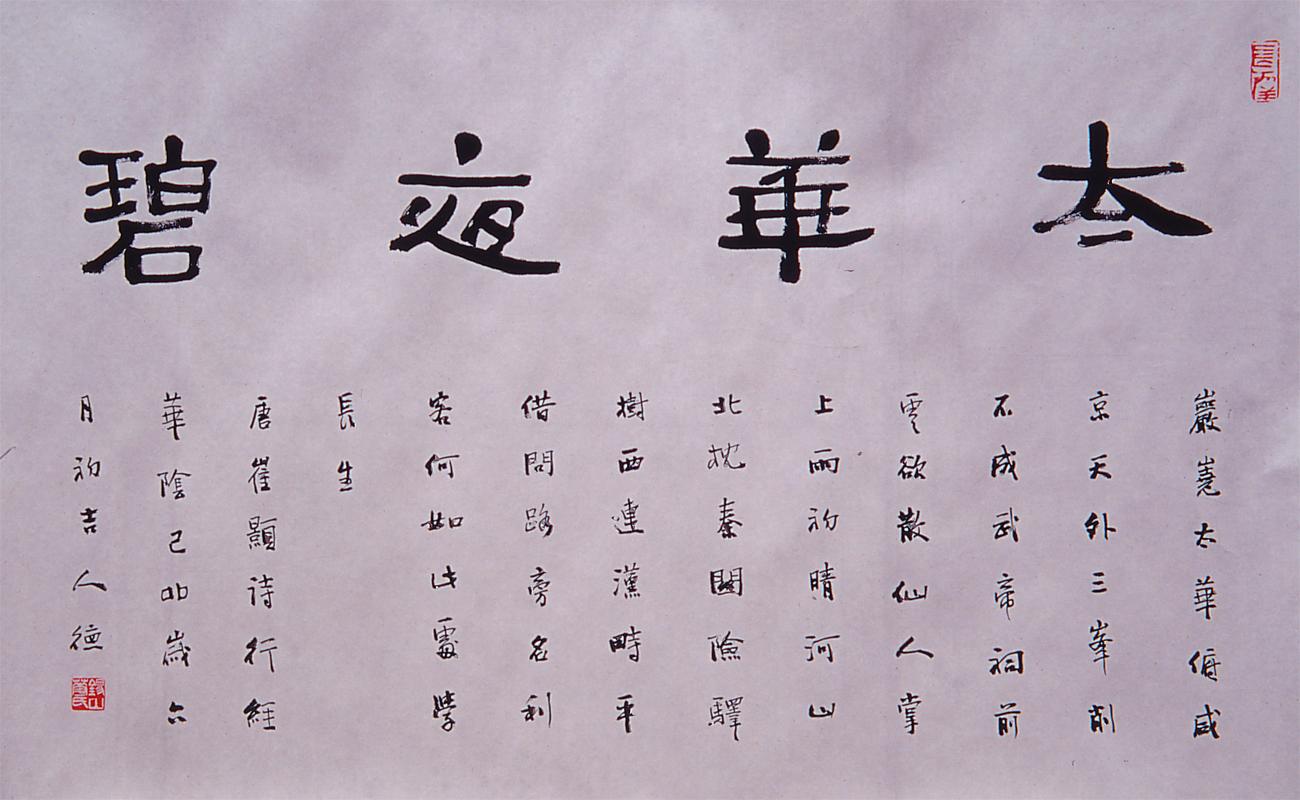 太華夜碧
巖嶤太華俯咸
京天外三峯削
不成武帝祠前
雲欲散仙人掌
上雨初晴河山
北枕秦關險驛
樹西連漢畤平
借問路旁名利
客何如此處學
長生
唐崔顥詩行經
華陰己卯歲六
月初吉人德